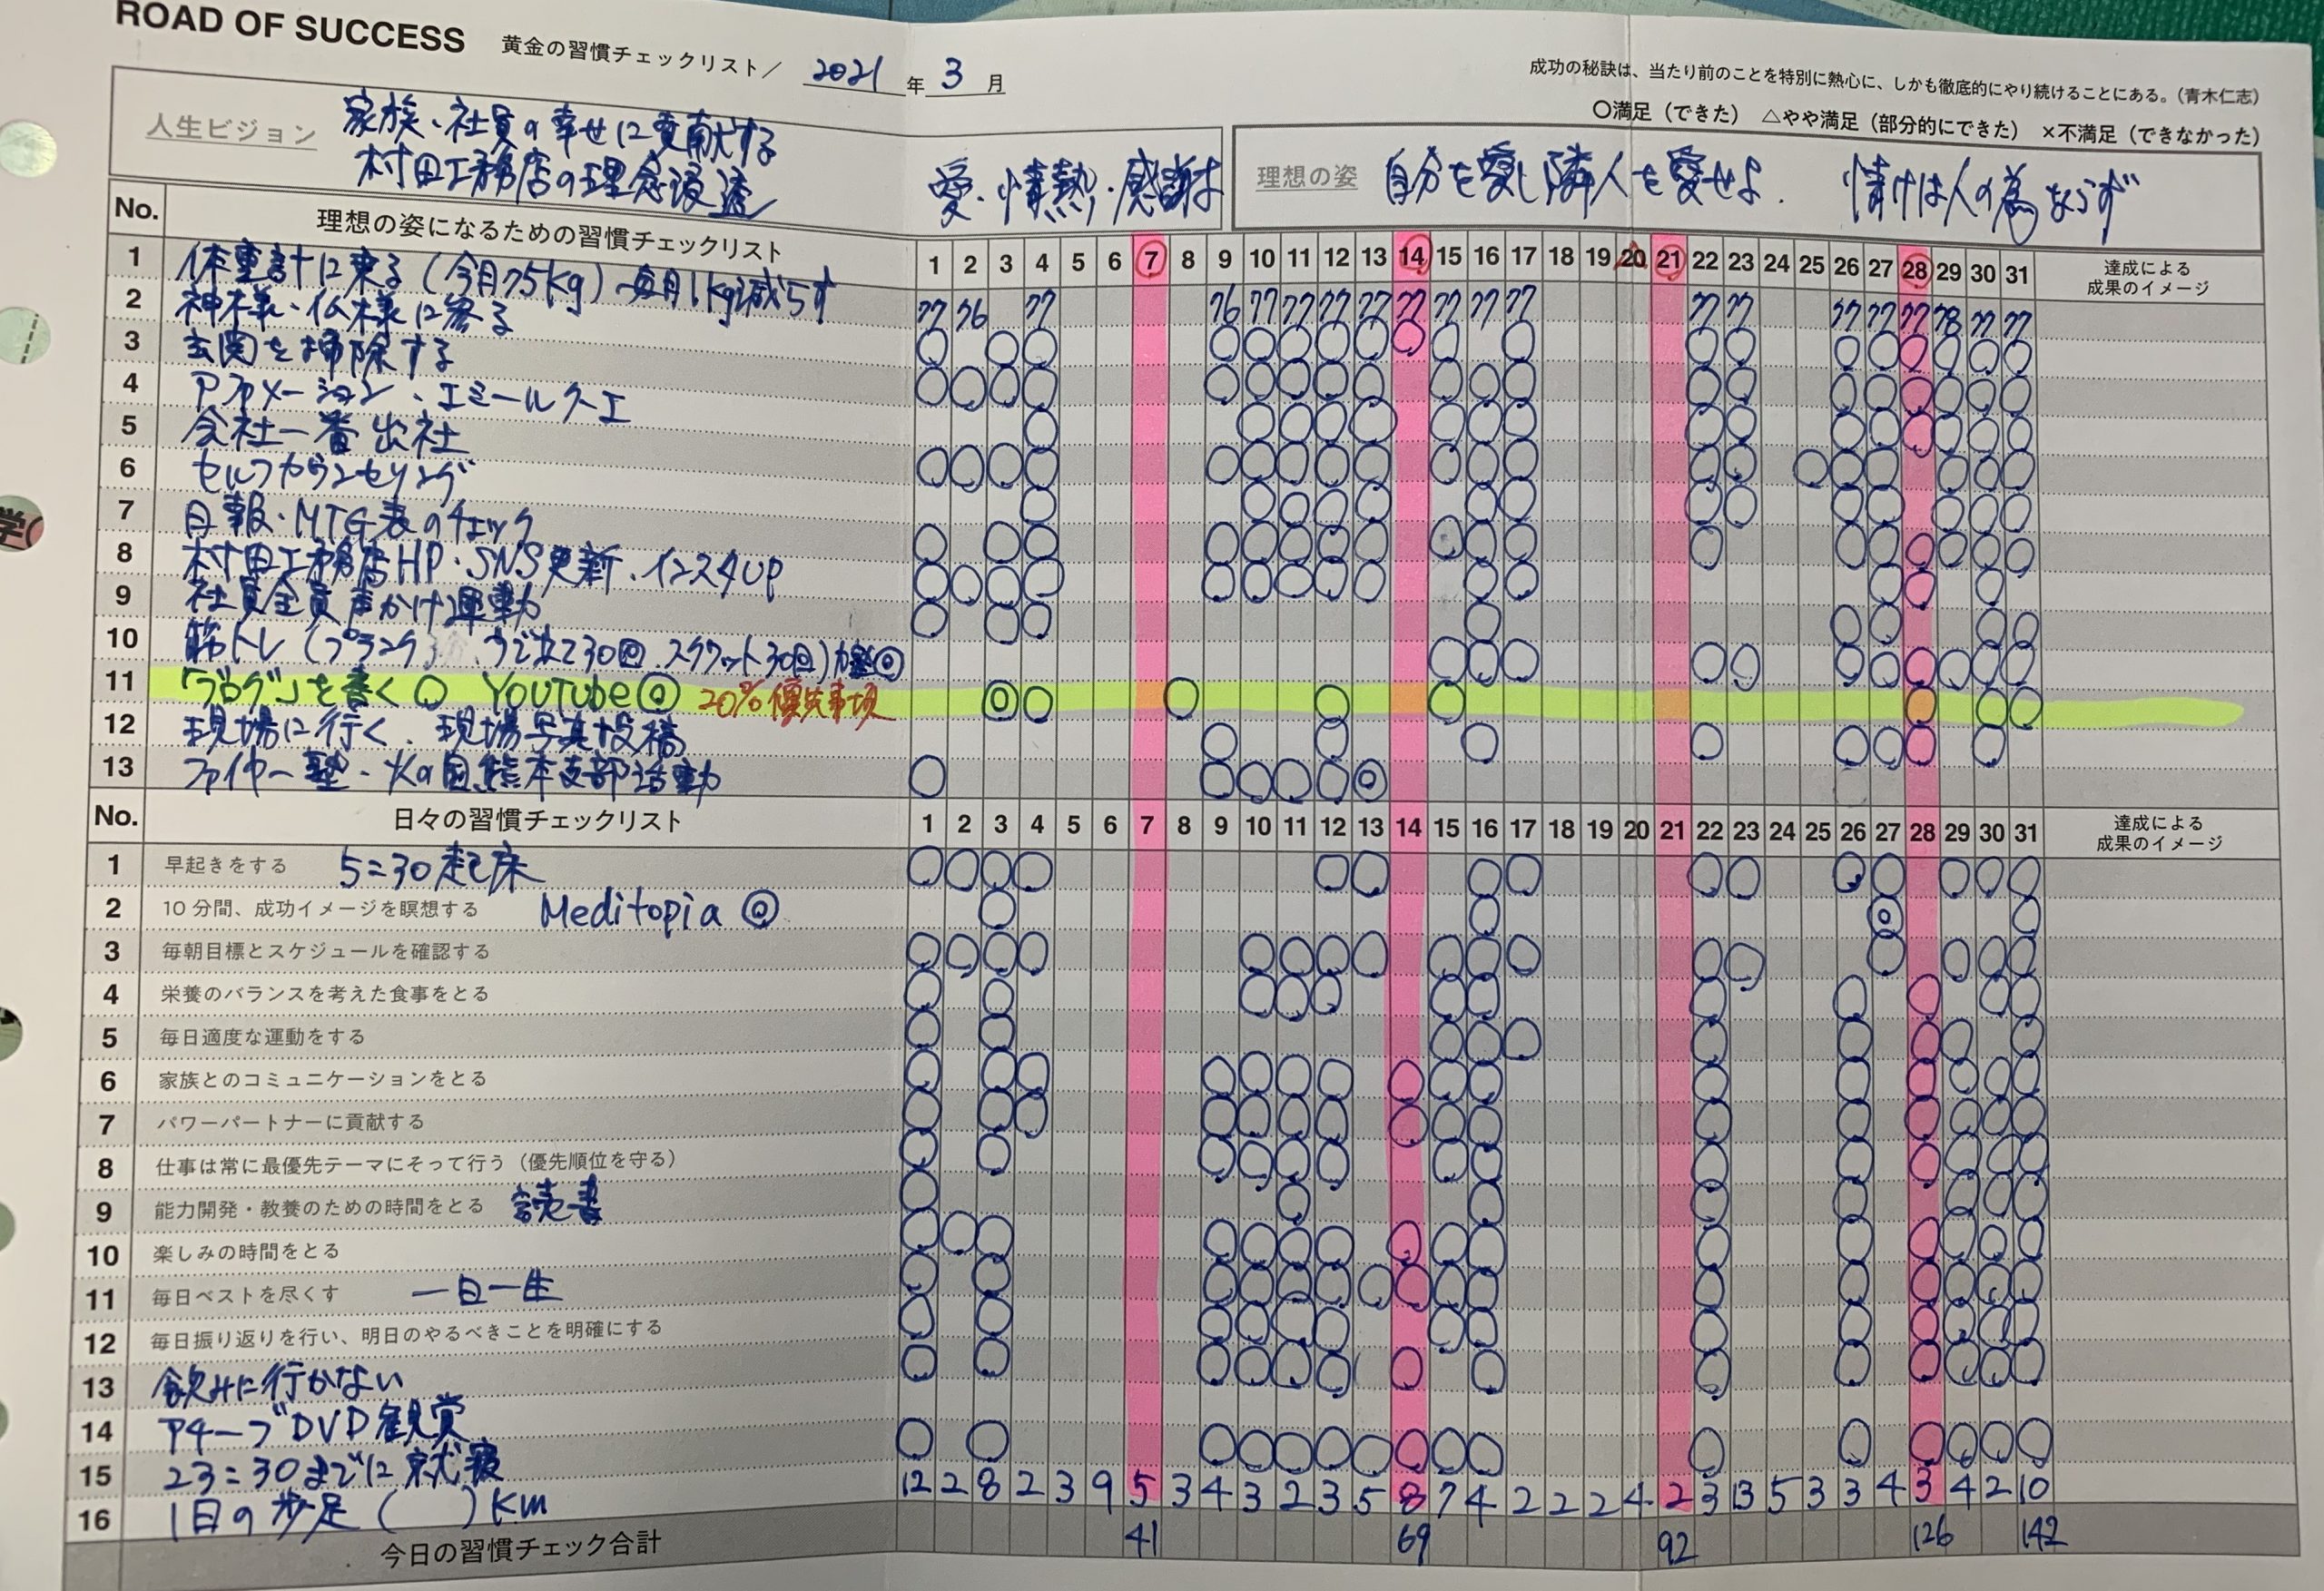 ROAD OF SUCCESS 黄金の習慣チェックリスト／ 2021 年 3 月
成功の秘訣は、当たり前のことを特別に熱心に、しかも徹底的にやり続けることにある。（青木仁志）
〇満足（できた） △やや満足（部分的にできた） ×不満足（できなかった）
人生ビジョン 家族、社員の幸せに貢献する
村田工務店の理念浸透
愛・情熱・感謝
理想の姿 自分を愛し隣人を愛せよ. 情けは人の為ならず
No. 理想の姿になるための習慣チェックリスト 1 2 3 4 5 6 7 8 9 10 11 12 13 14 15 16 17 18 19 20 21 22 23 24 25 26 27 28 29 30 31 達成による成果のイメージ
1 体重計に乗る（今月75kg）毎月1kg減らす 77 76 77 76 77 77 77 77 77 77 77 77 77 77 77 77 77 78 77 77
2 神様・仏様に参る
3 玄関を掃除する
4 アファメーション、エミールクーエ
5 会社一番出社
6 セルフカウンセリング
7 日報・MTG表のチェック
8 村田工務店HP・SNS更新、インスタUP
9 社員全員声かけ運動
10 筋トレ（プランク うで立て30回、スクワット30回）
11 「ブログ」を書く〇 YOUTUBE◎ 20%優先事項
12 現場に行く、現場写真投稿
13 ファイヤー塾・火の国熊本支部活動
No. 日々の習慣チェックリスト 1 2 3 4 5 6 7 8 9 10 11 12 13 14 15 16 17 18 19 20 21 22 23 24 25 26 27 28 29 30 31 達成による成果のイメージ
1 早起きをする 5:30起床
2 10分間、成功イメージを瞑想する Meditopia ◎
3 毎朝目標とスケジュールを確認する
4 栄養のバランスを考えた食事をとる
5 毎日適度な運動をする
6 家族とのコミュニケーションをとる
7 パワーパートナーに貢献する
8 仕事は常に最優先テーマにそって行う（優先順位を守る）
9 能力開発・教養のための時間をとる 読書
10 楽しみの時間をとる
11 毎日ベストを尽くす 一日一生
12 毎日振り返りを行い、明日のやるべきことを明確にする
13 飲みに行かない
14 アチーブDVD観賞
15 23:30までに就寝
16 1日の歩足（ ）Km 12 2 8 2 3 9 5 3 4 3 2 3 5 8 7 4 2 2 2 4 2 3 13 5 3 3 4 3 4 2 10
今日の習慣チェック合計 41 69 92 126 142